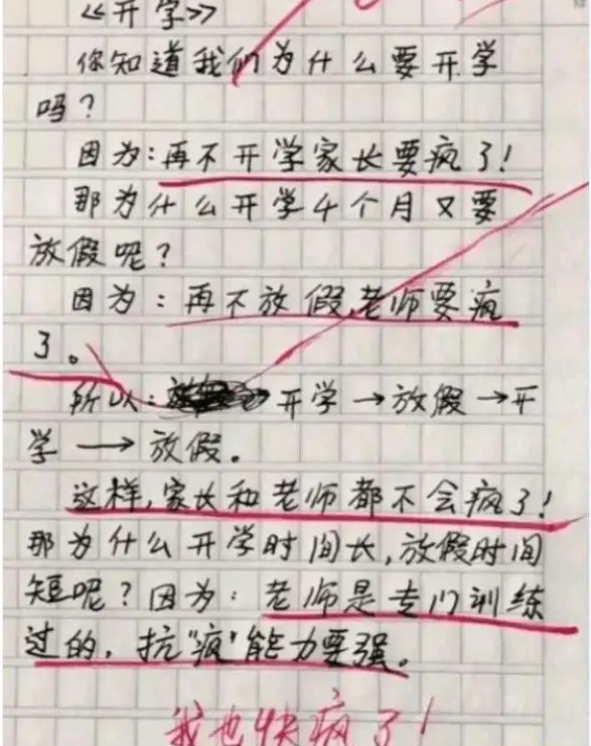 《开学》
你知道我们为什么要开学
吗？
因为：再不开学家长要疯了！
那为什么开学4个月又要
放假呢？
因为：再不放假，老师要疯
了。
所以：开学→放假→开
学→放假。
这样，家长和老师都不会疯了！
那为什么开学时间长，放假时间
短呢？因为：老师是专门训练
过的，抗"疯"能力要强。
我也快疯了！